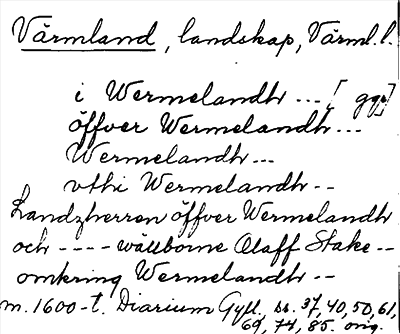 Värmland, landskap, Värml. l.
i Wermelandh --- [ ggr]
öffver Wermelandh ---
Wermelandh ---
vthi Wermelandh --
Landzherren öffver Wermelandh
och ---- wällborne Olaff Stake --
omkring Wermelandh --
m. 1600-t. Diarium Gyll. ss. 37, 40, 50, 61,
69, 74, 85. orig.